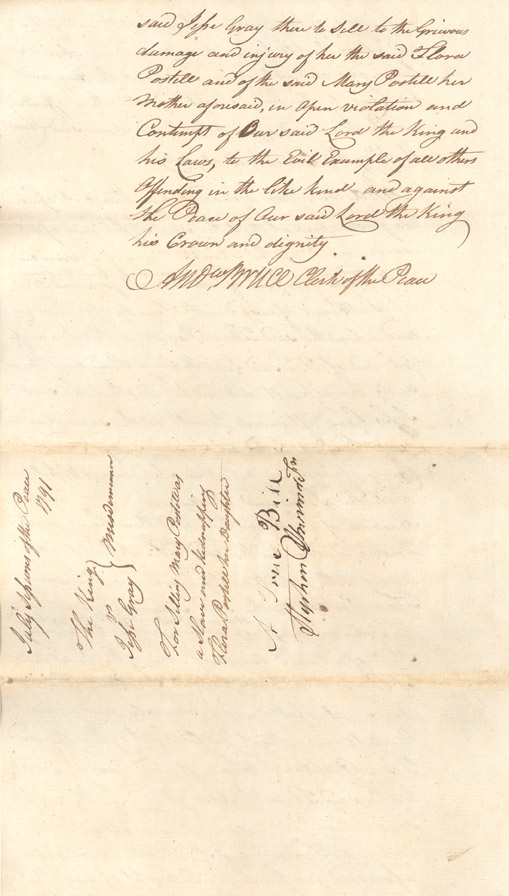 said Jesse Gray then to Sell to the Grievous
damage and injury of her the said Flora
Postill and of the said Mary Postill her
Mother aforesaid, in open violation and
Contempt of Our said Lord the King and
his Laws, to the Evil Example of all others
Offending in the like kind and against
the Peace of Our said Lord the King
his Crown and dignity
And.w Bruce Clerk of the Peace
July Sessions of the Peace
1791
The King
vs
Jesse Gray
} Misdemeanor
For Selling Mary Postill as
a Slave and kidnapping
Flora Postill her Daughter
A True Bill
Stephen